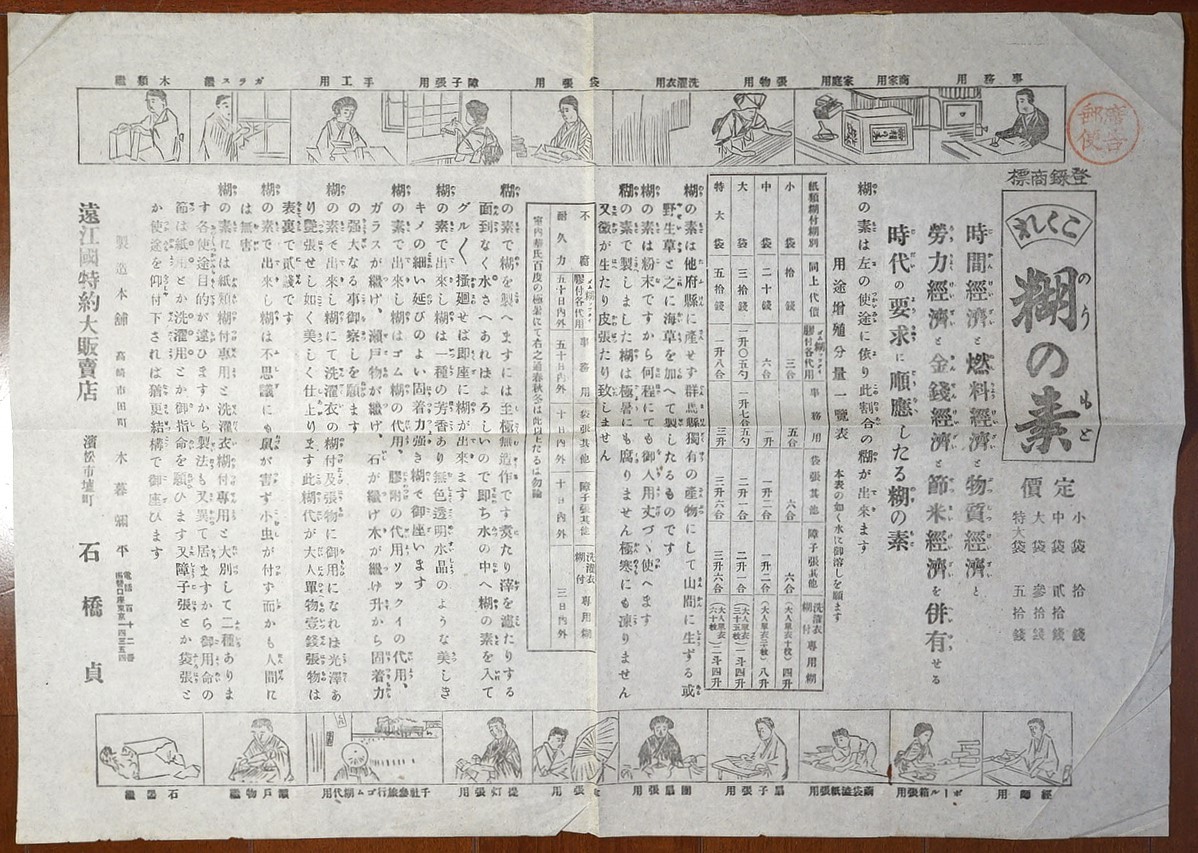 廣告
郵便
登錄商標
こくし丸
糊の素
定價
小袋 拾錢
中袋 貳拾錢
大袋 參拾錢
特大袋 五拾錢
時間經濟と燃料經濟と物質經濟と
勞力經濟と金錢經濟と節米經濟を併有せる
時代の要求に順應したる糊の素
糊の素は左の使途に依り此割合の糊が出來ます
用途增殖分量一覽表 本表の如く水に御溶しを願ます
紙類糊付糊別 同上代價 ゴム糊ソックイ膠付各代用 事務用 袋張其他 障子張其他 洗濯衣糊付專用糊
小袋 拾錢 三合 五合 六合 六合 (大人單衣十枚)四升
中袋 二十錢 六合 一升 一升二合 一升二合 (大人單衣二十枚)八升
大袋 三拾錢 一升〇五勺 一升七合五勺 二升一合 二升一合 (大人單衣三十五枚)一斗四升
特大袋 五拾錢 一升八合 三升 三升六合 三升六合 (大人單衣六十枚)二斗四升
糊の素は他府縣に產せす群馬縣獨有の產物にして山間に生ずる或
野生草と之に海草を加へて製したるものです
糊の素は粉末ですから何程にても御入用丈づゝ使へます
糊の素で製しました糊は極暑にも腐りません極寒にも凍りません
又黴が生たり皮張たり致しません
不腐耐久力 ゴム糊ソックイ膠付各代用 事務用 袋張其他 障子張其他 洗濯衣糊付專用糊
五十日內外 五十日內外 十日內外 十日內外 三日內外
室內華氏百度の極暑にて右之通春秋冬は此以上たるは勿論
糊の素で糊を製へますには至極無造作です煮たり滓を濾たりする
面到なく水さへあればよろしいので即ち水の中へ糊の素を入て
グル〱搔廻せば即座に糊が出來ます
糊の素で出來し糊は一種の芳香あり無色透明水晶のような美しき
キメの細い延びのよい固着力强き糊で御座います
糊の素で出來し糊はゴム糊の代用、膠糊の代用ソックイの代用、
ガラスが繼げ、瀨戶物が繼げ、石が繼げ木が繼け升から固着力
の强大なる事御察しを願ます
糊の素で出來し糊にて洗濯衣の糊付及張物に御用になれは光澤あ
り艷張せし如く美しく仕上ります此糊代が大人單物壹錢張物は
表裏で貳錢です
糊の素で出來し糊は不思議にも鼠が害す小虫が付す而かも人間に
は無害
糊の素には紙類糊付專用と洗濯衣糊付專用と大別して二種ありま
す各使途目的が違ひますから製法も又異て居ますから御用命の
節は紙用とか洗濯用とか御指命を願ひます又障子張とか袋張と
か使途を仰付下されは猶更結構で御座ひます
製造本舖 高崎市田町 木暮彌平
電話百十二番
振替口座東京一四三五四
遠江國特約大販賣店 濱松市 石橋貞
事務用
商家用
家庭用
張物用
洗濯衣用
袋張用
障子張用
手工用
ガラス繼
木類繼
經師用
ボール箱張用
扇子張用
團扇張用
提灯張用
千社參旅行ゴム糊代用
瀨戶物繼
石器繼